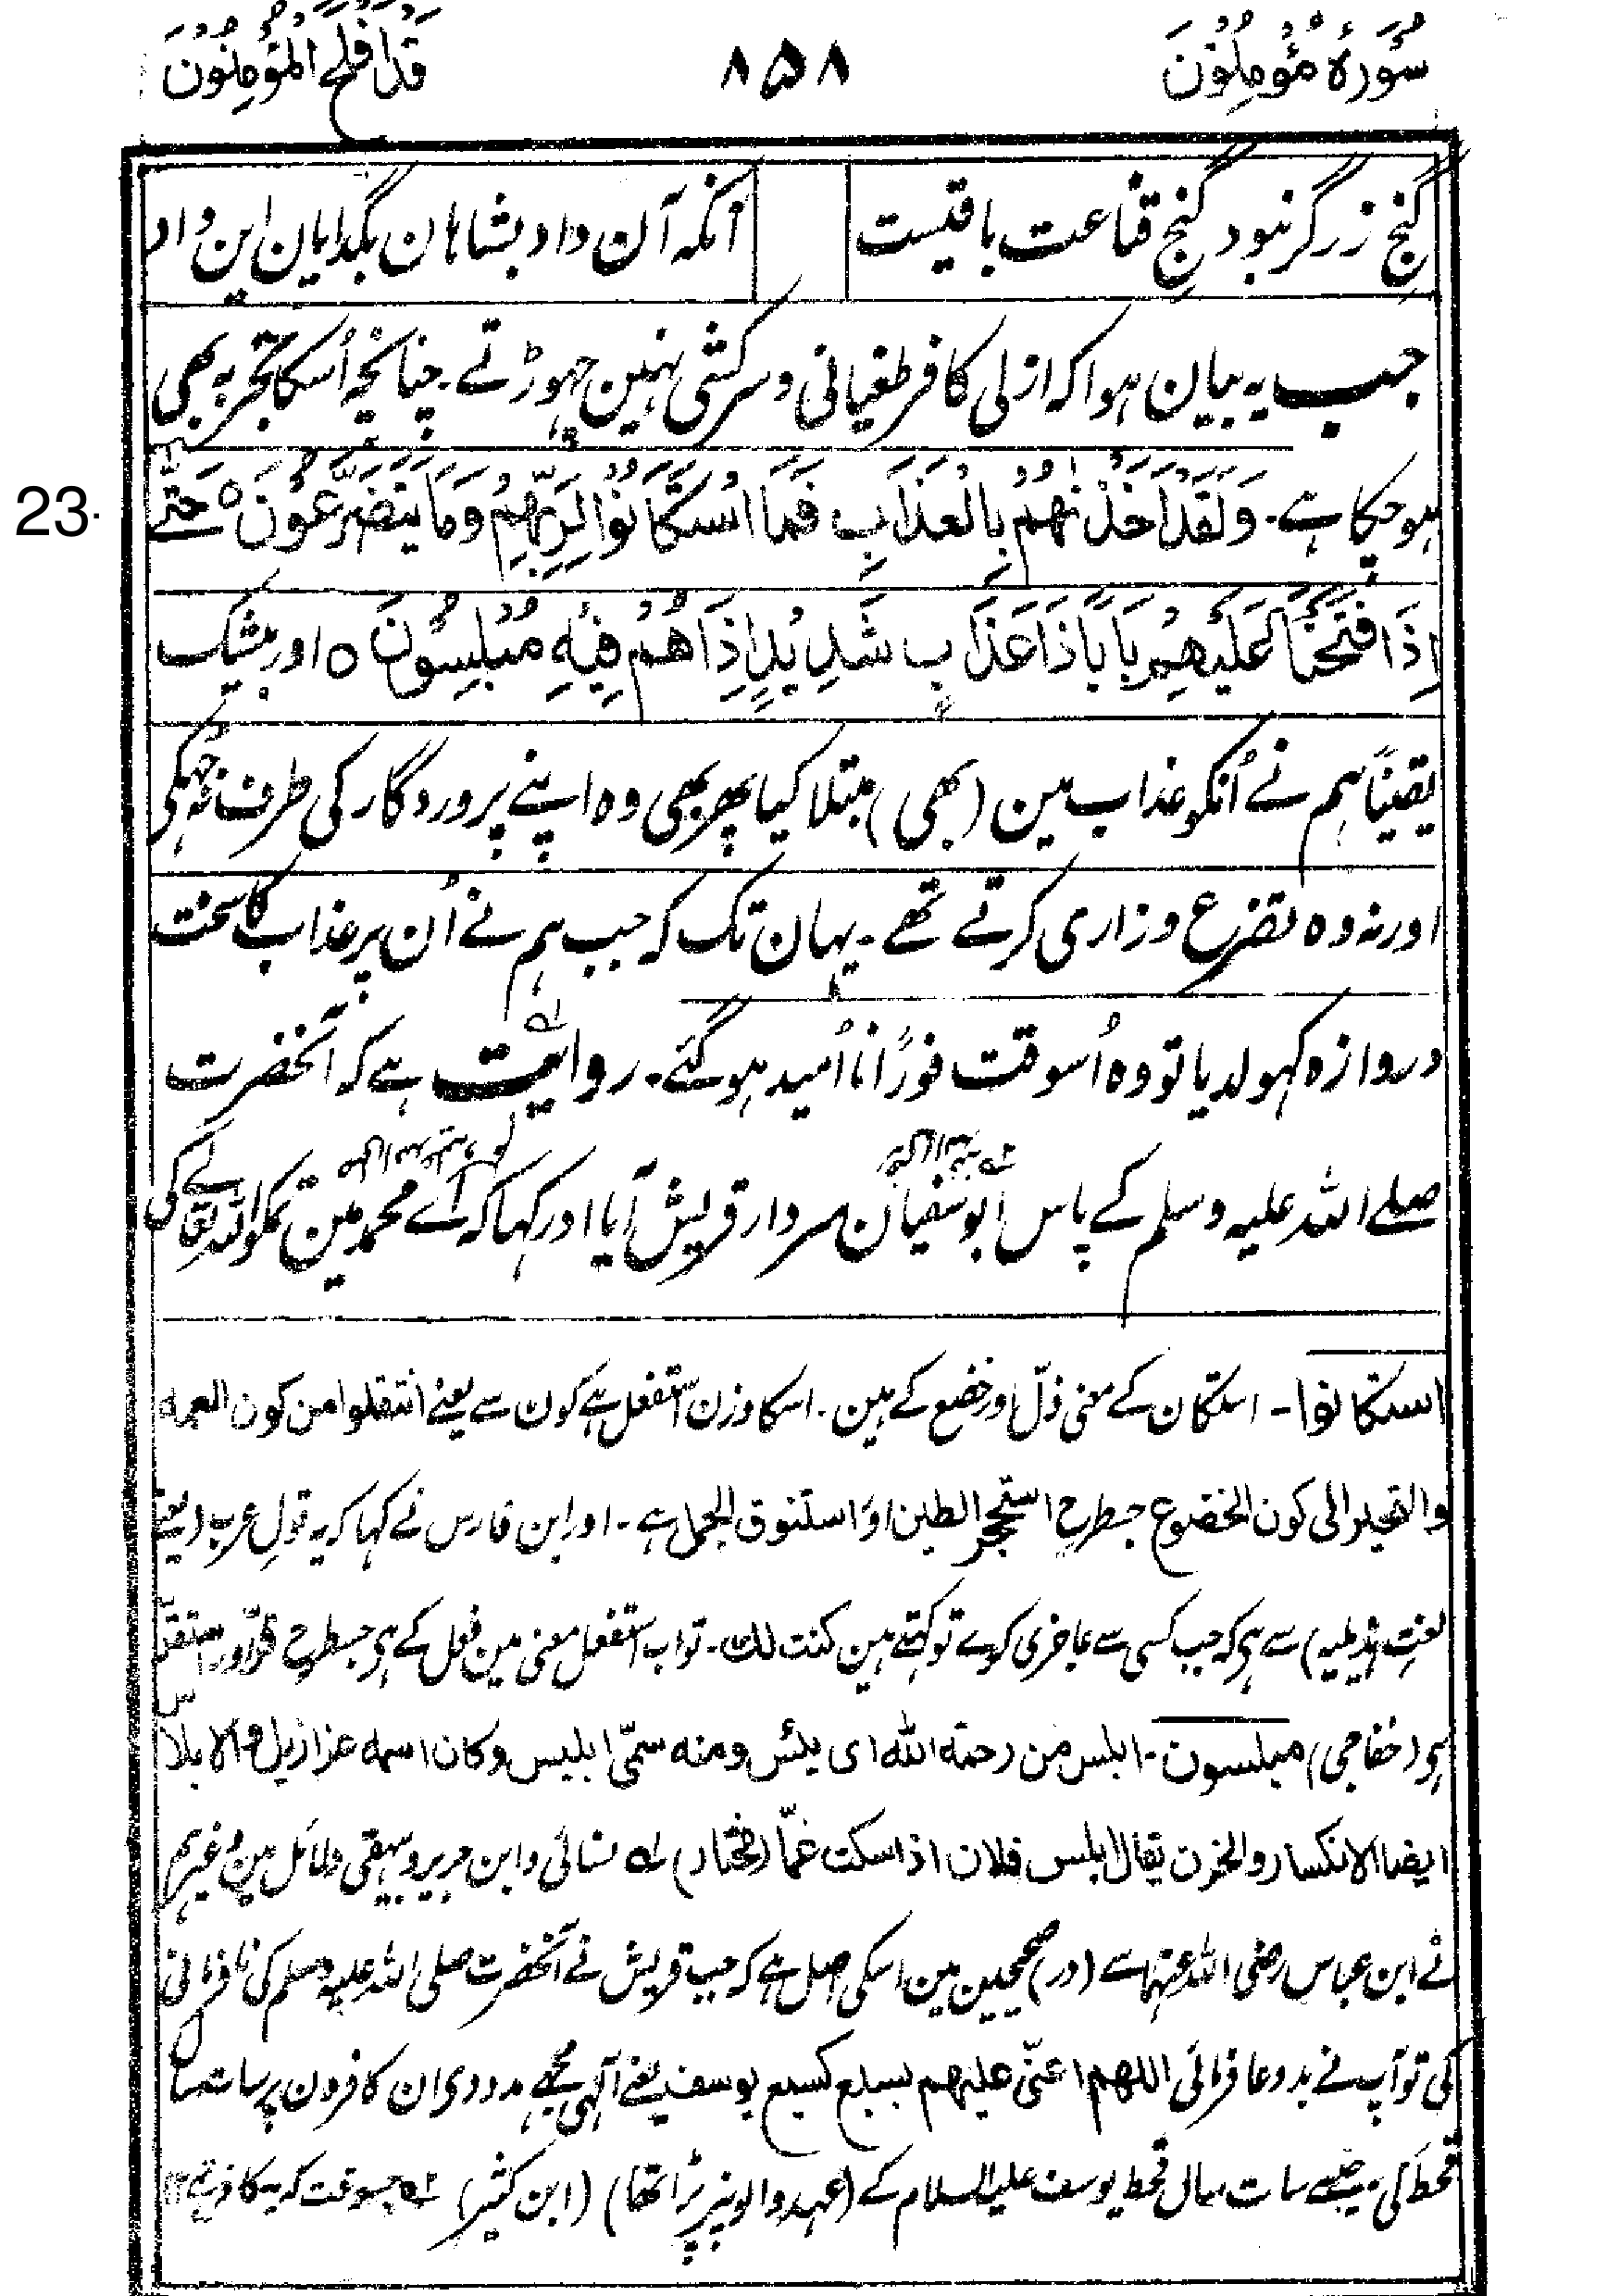 سُوْرَۂ مُؤْمِنُوْنَ
۸۵۸
قَدْ اَفْلَحَ الْمُؤْمِنُوْنَ
گنجِ زر گر نبود گنجِ قناعت باقیست
آنکہ آن داد بشاہان بگدایان این داد
جب یہ بیان ہوا کہ ازلی کافر طغیانی و سرکشی نہین چہوڑتے ۔ چنانچہ اُسکا تجربہ بھی
23.
ہوچکا ہے۔ وَلَقَدْ اَخَذْنٰهُمْ بِالْعَذَابِ فَمَا اسْتَكَانُوْا لِرَبِّهِمْ وَمَا يَتَضَرَّعُوْنَ ٥ حَتّٰۤى
اِذَا فَتَحْنَا عَلَيْهِمْ بَابًا ذَا عَذَابٍ شَدِيْدٍ اِذَا هُمْ فِيْهِ مُبْلِسُوْنَ ٥ اور بیشک
یقیناً ہم نے اُنکو عذاب مین (بھی) مبتلا کیا پھر بھی وہ اپنے پروردگار کی طرف نہ جھکی
اور نہ وہ تضرع وزاری کرتے تھے ۔ یہان تک کہ جب ہم نے اُن پر عذاب کا سخت
دروازہ کہولدیا تو وہ اُسوقت فوراً نا اُمید ہوگئے۔ روایت ہے کہ آنحضرت
صلے اللہ علیہ وسلم کے پاس ابوسفیان سردار قریش آیا اور کہا کہ اے محمد مین تمکو اللہ تعالےٰ کی
استکانوا ۔ استکان کے معنی ذلّ اور خضع کے ہین ۔ اسکا وزن استفعل ہے کون سے یعنے انتقلوا من کون العمہ
والتحیر الی کون الخضوع جسطرح استحجر الطین اوٗ استنوق الجمل ہے ۔ اور ابن فارس نے کہا کہ یہ قولِ عرب (یعنے
لغتِ ہذیلیہ) سے ہی کہ جب کسی سے عاجزی کرے تو کہتے ہین کنت لک ۔ تو اب استفعل معنی مین فعل کے ہی جسطرح قرّ اور استقرّ
ہی (خفاجی) مبلسون ۔ ابلس من رحمة اللہ ای یئس ومنه سمّی ابلیس وکان اسمه عزازیل والابلاس
ایضا الانکسار والحزن یقال ابلس فلان اذا سکت غمّا (مختار) لہ نسائی وابن جریر وبیہقی دلائل مین وغیرہم
نے ابن عباس رضی اللہ عنہما سے (اور) صحیحین مین اسکی اصل ہے کہ جب قریش نے آنحضرت صلی اللہ علیہ وسلم کی نافرمانی
کی تو آپ نے بددعا فرمائی اللهم اعنّی علیهم بسبع کسبع یوسف یعنے آلٰہی مجھے مدد دی ان کافرون پر سات سال
قحط کی، جیسے سات سال قحط یوسف علیہ السلام کے (عہد والونپر پڑا تھا) (ابن کثیر) ٥٢ جسوقت کہ یہ کافر تھے ١٢